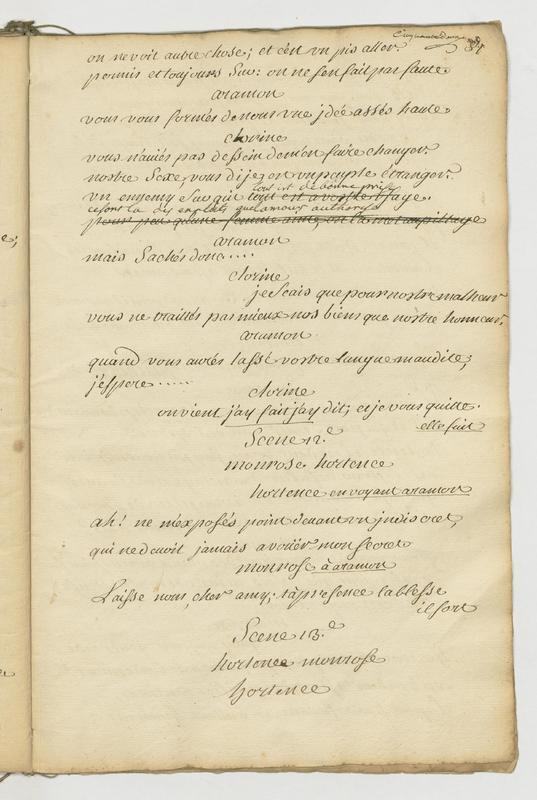 Cinquante deux
on ne voit autre chose; et c'est un pis aller.
permis et toujours Sur: on ne s'en fait pas faute.
aramon
vous vous formés de nous une jdée assés haute.
clorine
vous n'aués pas dessein de m'en faire changer.
nostre Sexe, vous dis-je, est un peuple étranger.
tout est de bonne prise
un ennemy Sur qui tout est
ce sont la des que l'amour authorise
pour peu qu'une femme aime, on la met au pillage
aramon
mais Sachés donc....
clorine
je scais que pour nostre malheur
vous ne traittés pas mieux nos biens que nôstre honneur.
aramon.
quand vous aurés lassé vostre langue maudite;
j'éspere.....
clorine
on vient j'ay fait j'ay dit; et je vous quitte.
elle sort
Scene 12.e
monrose hortence
hortence en voyant aramon
ah! ne m'exposés point deuant un jndiscret,
qui ne deuoit jamais avoüer mon secret
monrose à aramon
Laisse nous, cher amy; ta presence la blesse
il sort
Scene 13.e
hortence monrose
hortence
e;